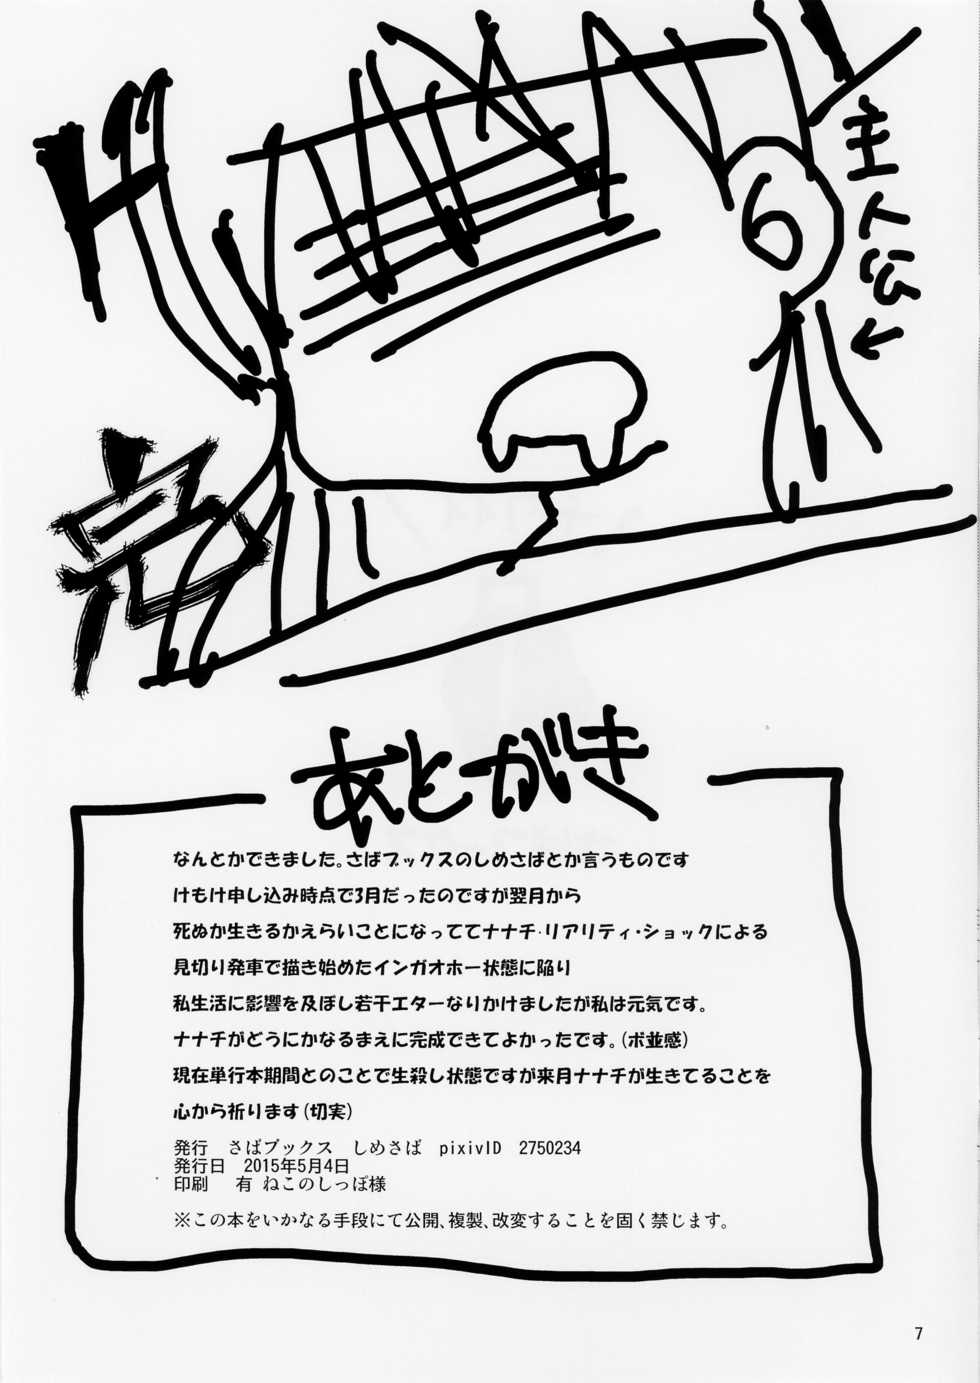 ド
主人公
6
完
あとがき
なんとかできました。さばブックスのしめさばとか言うものです
けもけ申し込み時点で3月だったのですが翌月から
死ぬか生きるかえらいことになっててナナチ・リアリティ・ショックによる
見切り発車で描き始めたインガオホー状態に陥り
私生活に影響を及ぼし若干エターなりかけましたが私は元気です。
ナナチがどうにかなるまえに完成できてよかったです。(ボ並感)
現在単行本期間とのことで生殺し状態ですが来月ナナチが生きてることを
心から祈ります(切実)
発行　さばブックス　しめさば　pixivID　2750234
発行日　2015年5月4日
印刷　有 ねこのしっぽ様
※この本をいかなる手段にて公開、複製、改変することを固く禁じます。
7